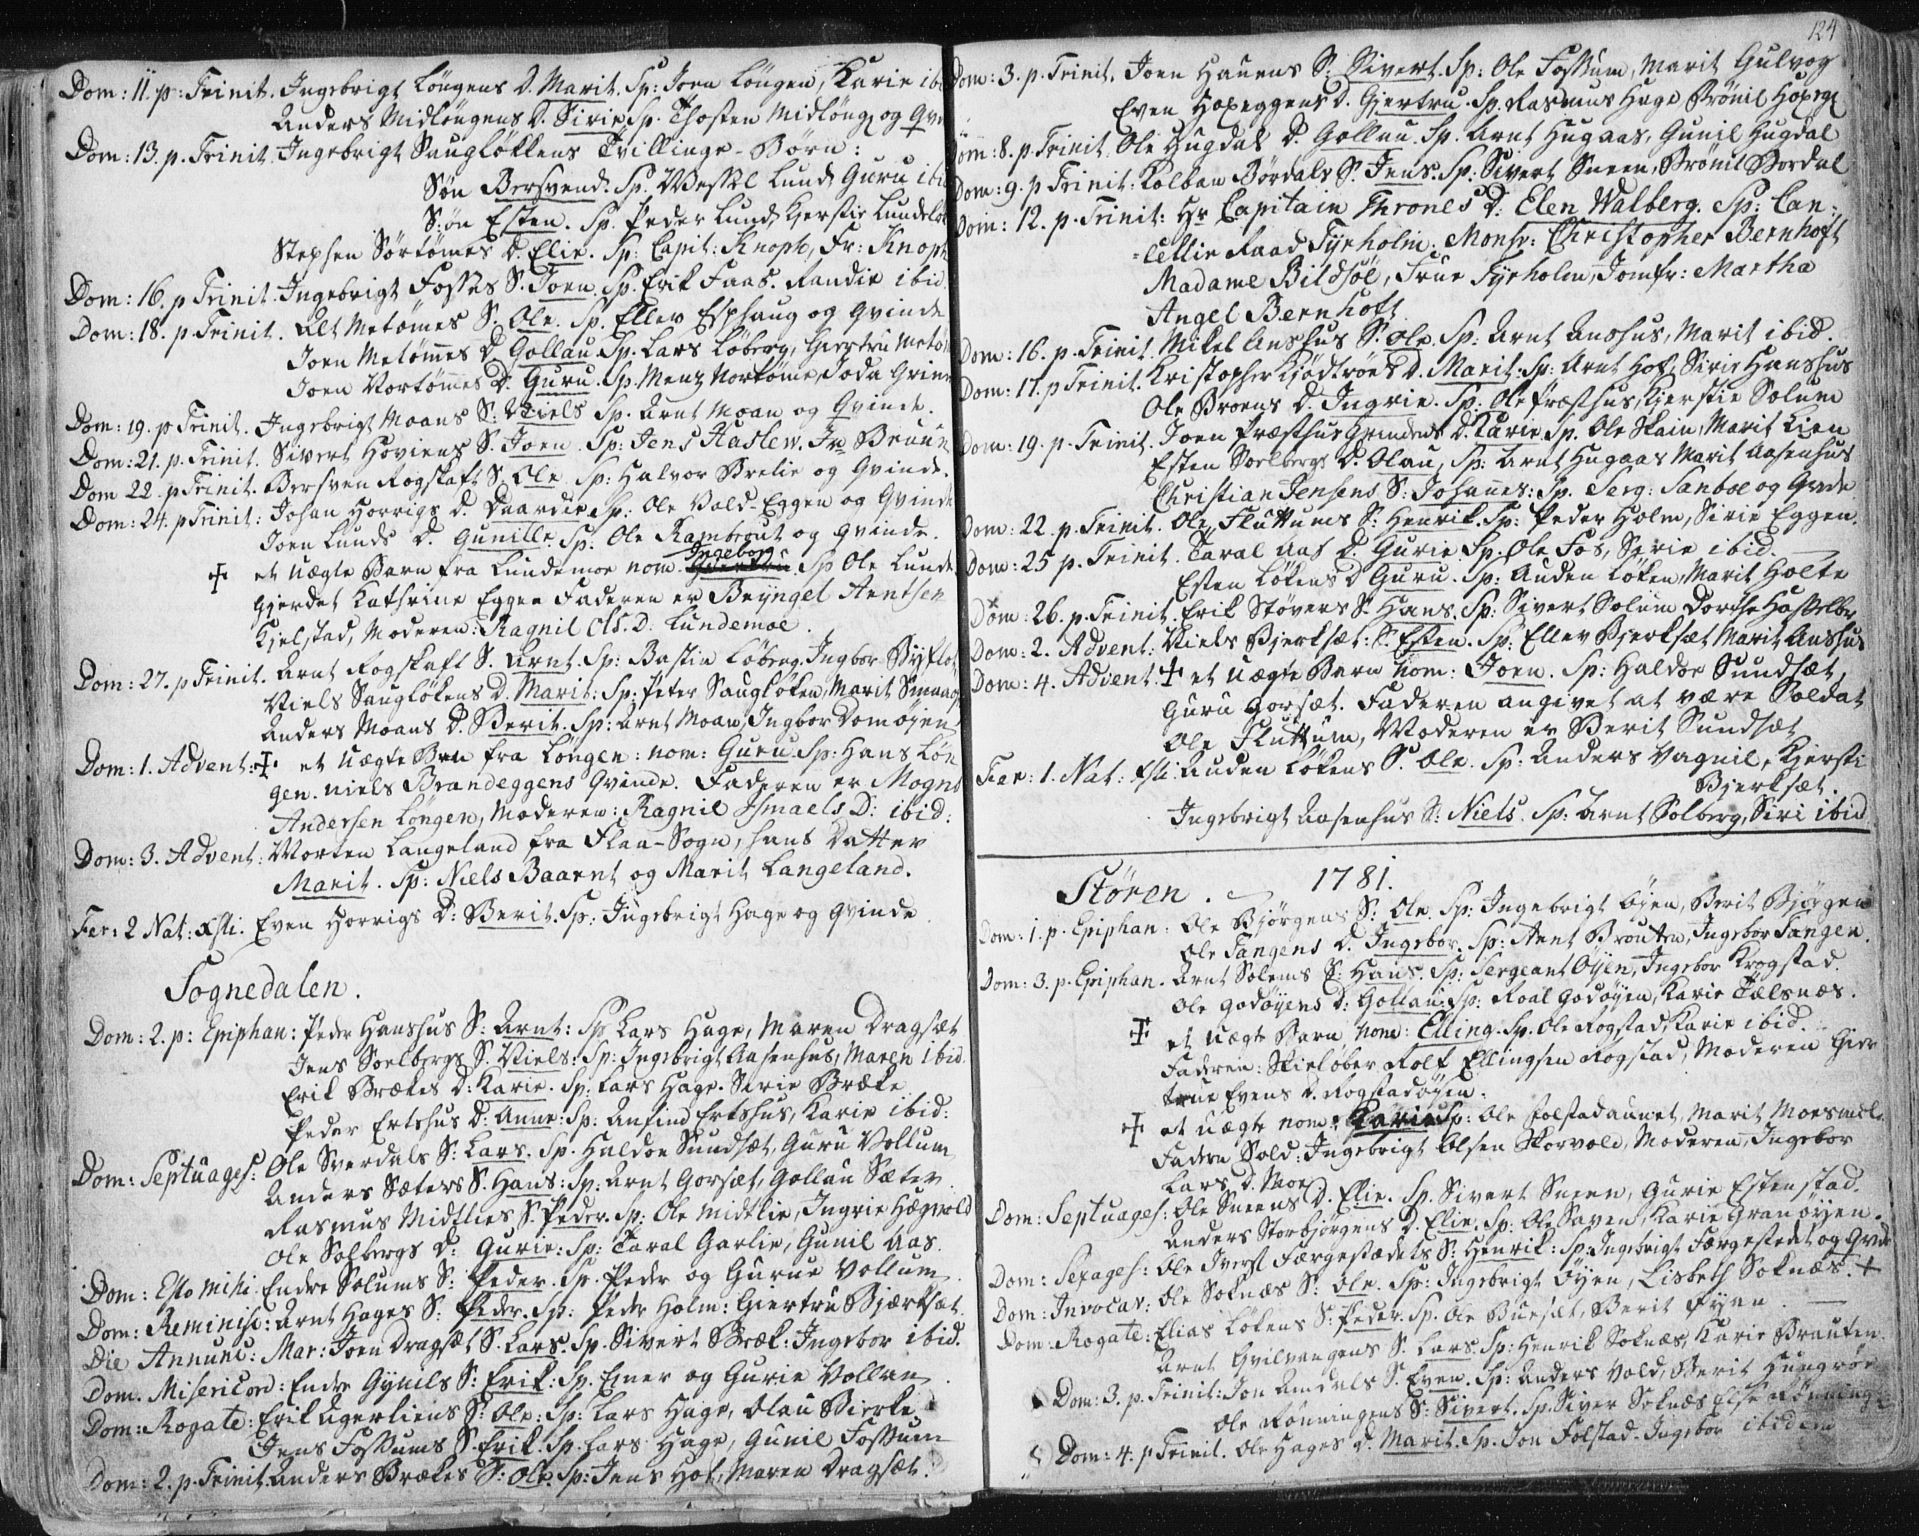 Dom: 11. p: Trinit. Ingebrigt Löngens D. Marit. Sp: Joen Löngen, Karie ibi
Anders Midlöngens D. Sirie. Sp. Thosten Midlöng og Qvi
Dom: 13. p. Trinit. Ingebrigt Saugløkkens Tvillinge-Børn:
Søn Bersvend. Sp. Wessel Lund, Guru ibi
S:øn Esten. Sp. Peder Lund, Kjerstie Lundeløk
Stephen Sørtømes D. Elie. Sp: Capit: Knoph, Fr: Knoph
Dom: 16. p Trinit. Ingebrigt Fosses S. Joen. Sp. Erik Faab. Randie ibid
Dom: 18. p. Trinit. Alt Metømes S. Ole. Sp. Ellev Esphaug og Qvinde
Joen Metømes D. Gollau. Sp. Lars Löberg, Giertru Metöm
Joen Vortømes D. Guru. Sp. Menz Vortøme, Joda Grin
Dom: 19. p Trinit. Ingebrigt Moans S. Niels Sp. Arnt Moan og Qvinde.
Dom: 21. p. Trinit. Sivert Hoviens S. Joen. Sp: Jens Haslew. Fr Bruun
Dom 22. p Trinit. Bersven Rogstaft S. Ole Sp: Halvor Brelie og Qvinde.
Dom: 24. p Trinit: Johan Horrigs D. Daardie Sp: Ole Vold-Eggen og Qvinde
Joen Lunds D. Gunille. Sp: Ole Rambrout og Qvinde.
Ingebor
+ et uægte Barn fra Lundemoe nom. Sp Ole Lunde,
Gjerdet Kathrine Eggen Faderen er Bryngel Arntsen
Kjelstad, Moderen: Ragnil Ols. D: Lundemoe.
Dom: 27. p Trinit. Arnt Rogstaft S. Arnt. Sp: Bastin Löberg, Ingbor Byflot
Niels Saugløkens D. Marit: Sp: Peter Saugløken, Marit Smaag
Anders Moans D. Berit. Sp: Arnt Moan, Ingbor Domøjen
Dom: 1. Advent: + et uægte Brn fra Löngen: nom: Guru. Sp: Hans Lön
gen. Niels Brandeggens Qvinde. Faderen er Mogns
Andersen Löngen, Moderen: Ragnil Ismaels D: ibid:
Dom: 3. Advent: Morten Langeland fra Flaa-Sogn, hans Datter
Marit. Sp: Niels Baarnt og Marit Langeland.
Fer: 2 Nat: Xsti. Even Horrigs D: Berit. Sp: Ingebrigt Hage og Qvinde
Sognedalen.
Dom: 2. p: Epiphan: Peder Hanshus S: Arnt: Sp Lars Hage, Maren Dragsæt
Jens Soelbergs S. Niels: Sp: Ingebrigt Aasenhus, Maren ibid.
Erik Brækes D: Karie. Sp: Lars Hage. Sirie Bræke
Peder Ertshus D: Anne: Sp: Anfind Ertshus, Karie ibid:
Dom: Septuages: Ole Sverdals S: Lars. Sp. Haldoe Sundsæt, Guru Vollum
Anders Sæters S. Hans: Sp: Arnt Gorsæt, Gollau Sæter.
Rasmus Midtlies S. Peder. Sp: Ole Midtlie, Ingrie Hægvold
Ole Solbergs D: Gurie: Sp: Taral Garlie, Gunil Aas.
Dom: Esto mihi. Endre Solums S: Peder. Sp. Peder og Gurue Vollum
Dom: Reminisc: Arnt Hages S: Peder. Sp: Peder Holm: Giertru Bjærksæt.
Die Annunc: Mar: Joen Dragsæt S. Lars. Sp. Sivert Bræk: Ingebor ibid.
Dom. Misericord: Endre Gynils S: Erik: Sp. Ener og Gurie Vollan
Dom: Rogate: Erik Agerliens S: Ole: Sp: Lars Hage, Olau Bierke
Jens Fossums S. Erik. Sp. Lars Hage, Gunil Fossum
Dom: 2. p. Trinit. Anders Brækes S: Ole. Sp: Jens Hof, Maren Dragsæt.
124
Dom: 3. p. Trinit. Joen Hauens S: Sivert. Sp: Ole Fossum, Marit Gulvog
Even Hoxeggens D. Gjertru. Sp. Rasmus Hage Brønil Hoxegg
Dom: 8. p Trinit. Ole Hugdal D. Gollau. Sp. Arnt Hugaas, Gunil Hugdal
Dom: 9. p Trinit: Kolban Børdals S. Jens. Sp: Sivert Sneen, Brønil Bordal
Dom: 12. p. Trinit: Hr Capitain Thrones D: Elen Walberg. Sp: Can-
cellie Raad Tyrholm. Monsr: Christopher Bernhoft
Madame Bildsöe, Frue Tyrholm, Jomfr: Martha
Angel Bernhoft.
Dom: 16. p. Trinit. Mikel Anshus S. Ole. Sp: Arnt Anshus, Marit ibid.
Dom: 17. p Trinit. Kristopher Kjödtröes D. Marit. Sp: Arnt Hof, Sirie Hanshus
Ole Broens D. Ingrie. Sp: Ole Præsthus, Kjerstie Solum
Dom: 19. p. Trinit. Joen Præsthus Grinders D. Karie Sp. Ole Skain, Marit Lien
Esten Soelbergs D. Olau, Sp: Arnt Hugaas Marit Aasenhus
Christian Jensens S: Johannes: Sp. Serg: Sanboe og Qvde
Dom: 22. p. Trinit. Ole Fluttums S: Henrik. Sp: Peder Holm, Sirie Eggen.
Dom: 25 p. Trinit. Taral Aas D. Gurie Sp. Ole Fos, Serie ibid.
Esten Løkens D Guru. Sp: Auden Løken, Marit Holte
Dom: 26. p. Trinit. Erik Støvers S. Hans. Sp: Sivert Solum Dorthe Hasselbr
Dom: 2. Advent: Niels Bjerksæt: S. Esten. Sp: Ellev Bjerksæt Marit Anshus
Dom: 4. Advent + et uægte Barn nom: Joen. Sp: Haldor Sundsæt,
Guru Gorsæt. Faderen angivet at være Soldat
Ole Fluttum, Moderen er Berit Sundsæt
Fer: 1. Nat: Xsti. Auden Løkens S. Ole. Sp: Anders Vagnil, Kjersti
Bjerksæt.
Ingebrigt Aasenhus S: Niels. Sp: Arnt Solberg, Siri ibid
Støren. 1781.
Dom: 1. p. Epiphan: Ole Bjørgens S: Ole. Sp: Ingebrigt Øyen, Berit Bjørgen
Ole Tangens D. Ingebor. Sp: Arnt Brouten, Ingebor Tangen.
Dom: 3. p. Epiphan. Arnt Solems S: Hans. Sp: Sergeant Øyen, Ingebor Krogstad.
Ole Godøyens D: Gollau: Sp: Roal Godøyen, Karie Tælsnæs.
+ et uægte Barn nom: Elling. Sp. Ole Rogstad, Karie ibid.
Faderen: Skieløber Rolf Ellingsen Rogstad, Moderen Gier
true Evens D. Rogstadøyen.
+ et uægte nom: Karie Sp: Ole Folstadaunet, Marit Moesmele
Faderen Sold: Ingebrigt Olsen Skorvold, Moderen, Ingebor
Lars D. Moe
Dom: Septuages: Ole Sneens D. Elie. Sp. Sivert Sneen, Gurie Estenstad.
Anders Storbjørgens D. Elie. Sp: Ole Haven, Karie Granøyen.
Dom: Sexages: Ole Iverst Færgestædets S: Henrik: Sp: Ingebrigt Færgestedet og Qvde
Dom: Invocav: Ole Soknæs S: Ole. Sp: Ingebrigt Øyen, Lisbeth Soknæs. +
Dom: Rogate: Elias Løkens S: Peder. Sp. Ole Buesæt, Berit Fyen.
Arnt Gvilvangens S. Lars. Sp: Henrik Soknæs, Karie Brauten.
Dom: 3. p. Trinit: Jon Amdals S. Even. Sp: Anders Vold, Berit Hungrøe
Ole Rønningens S: Sivert. Sp. Siver Soknæs Else Rønninge
Dom: 4. p Trinit. Ole Hages D. Marit. Sp. Jon Folstad. Ingebor ibidem